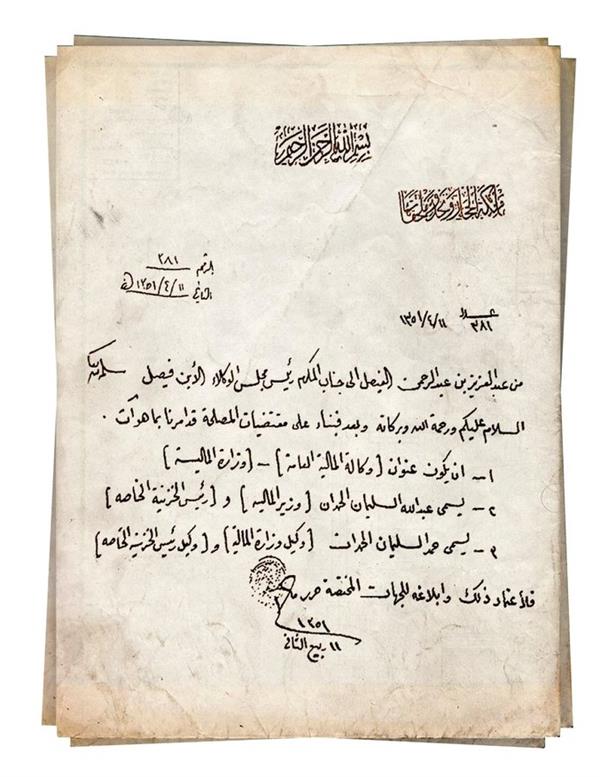 بسم الله الرحمن الرحيم
مملكة الحجاز ونجد وملحقاتها
الرقم ٢٨١
التاريخ ١١/٤/١٣٥١هـ
عدد ٣٨١
١١/٤/١٣٥١
من عبدالعزيز بن عبدالرحمن الفيصل الى جناب المكرم رئيس مجلس الوكلاء الأبن فيصل سلمه الله
السلام عليكم ورحمة الله وبركاته وبعد فبناء على مقتضيات المصلحة قد امرنا بما هو آت .
١ – ان يكون عنوان [وكالة المالية العامة] – [وزارة المالية]
٢ – يسمى عبدالله السليمان الحمدان [وزير الماليه] و [رئيس الخزينة الخاصه]
٣ – يسمى حمد السليمان الحمدان [وكيل وزارة المالية] و [وكيل رئيس الخزينة الخاصه]
فلأعتماد ذلك وابلاغه للجهات المختصة حرر
١٣٥١
١١ ربيع الثاني